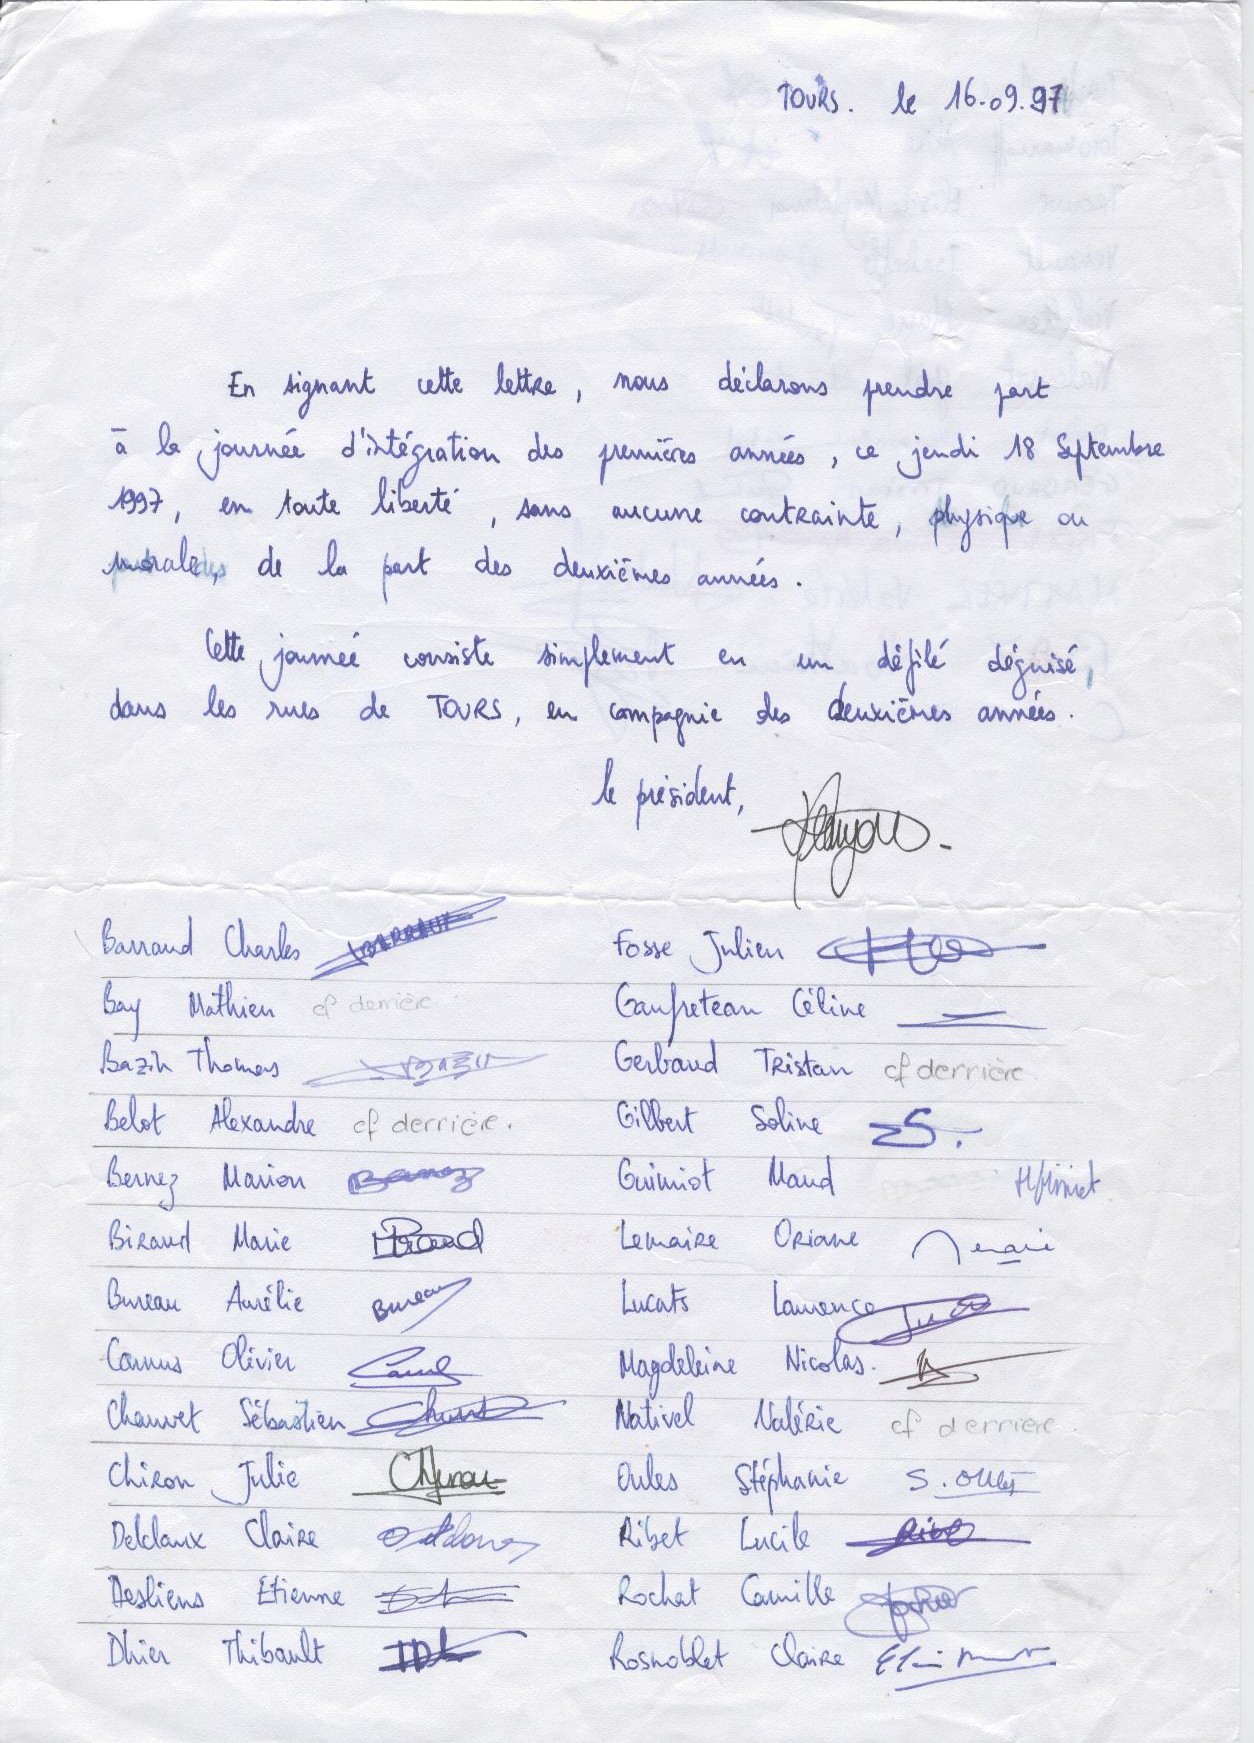 TOURS. le 16.09.97
En signant cette lettre, nous déclarons prendre part
à la journée d'intégration des premières années, ce jeudi 18 Septembre
1997, en toute liberté, sans aucune contrainte, physique ou
morale, de la part des deuxièmes années.
Cette journée consiste simplement en un défilé déguisé,
dans les rues de TOURS, en compagnie des deuxièmes années.
le président,
Barraud Charles
Bay Mathieu cf derrière
Bazin Thomas
Belot Alexandre cf derrière.
Bernez Marion Bernez
Biraud Marie
Bureau Aurélie Bureau
Camus Olivier
Chauvet Sébastien
Chiron Julie
Delclaux Claire
Desliens Etienne
Dhier Thibault
Fosse Julien
Gaufreteau Céline
Gerbaud Tristan cf derrière
Gilbert Soline
Guimiot Maud
Lemaire Oriane
Lucats Laurence
Magdeleine Nicolas.
Nativel Valérie cf derrière
Oules Stéphanie S. Oules
Ribet Lucile
Rochat Camille
Rosnoblet Claire